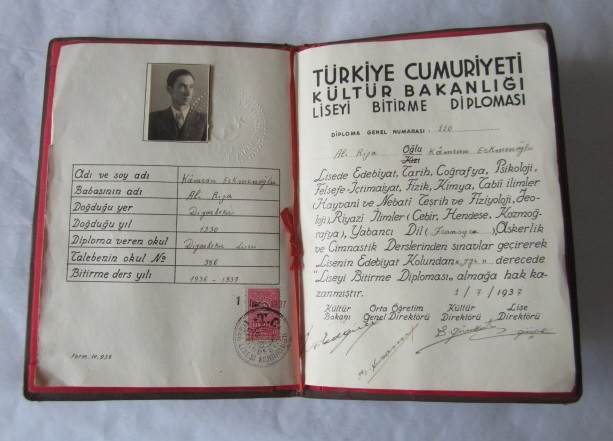 Adı ve soy adı Kâmran Eskmenoğlu
Babasının adı Ali Rıza
Doğduğu yer Diyarbekir
Doğduğu yıl 1330
Diploma veren okul Diyarbekir Lisesi
Talebenin okul № 396
Bitirme ders yılı 1936 - 1937
1
T.C.
Form. N. 936
TÜRKİYE CUMURİYETİ
KÜLTÜR BAKANLIĞI
LİSEYİ BİTİRME DİPLOMASI
DİPLOMA GENEL NUMARASI: 120
Ali Rıza Oğlu Kâmran Eskmenoğlu
Kızı
Lisede Edebiyat, Tarih, Coğrafya, Psikoloji,
Felsefe-İçtimaiyat, Fizik, Kimya, Tabiî ilimler
(Hayvani ve Nebati Teşrih ve Fiziyoloji, Jeo-
loji), Riyazi İlimler (Cebir, Hendese, Kozmoğ-
rafya), Yabancı Dil (Fransızca) Askerlik
ve Cimnastik Derslerinden sınavlar geçirerek
Lisenin Edebiyat Kolundan derecede
"Liseyi Bitirme Diploması" almağa hak ka-
zanmıştır. 1/7/1937
Kültür Orta Öğretim Kültür Lise
Bakanı Genel Direktörü Direktörü Direktörü